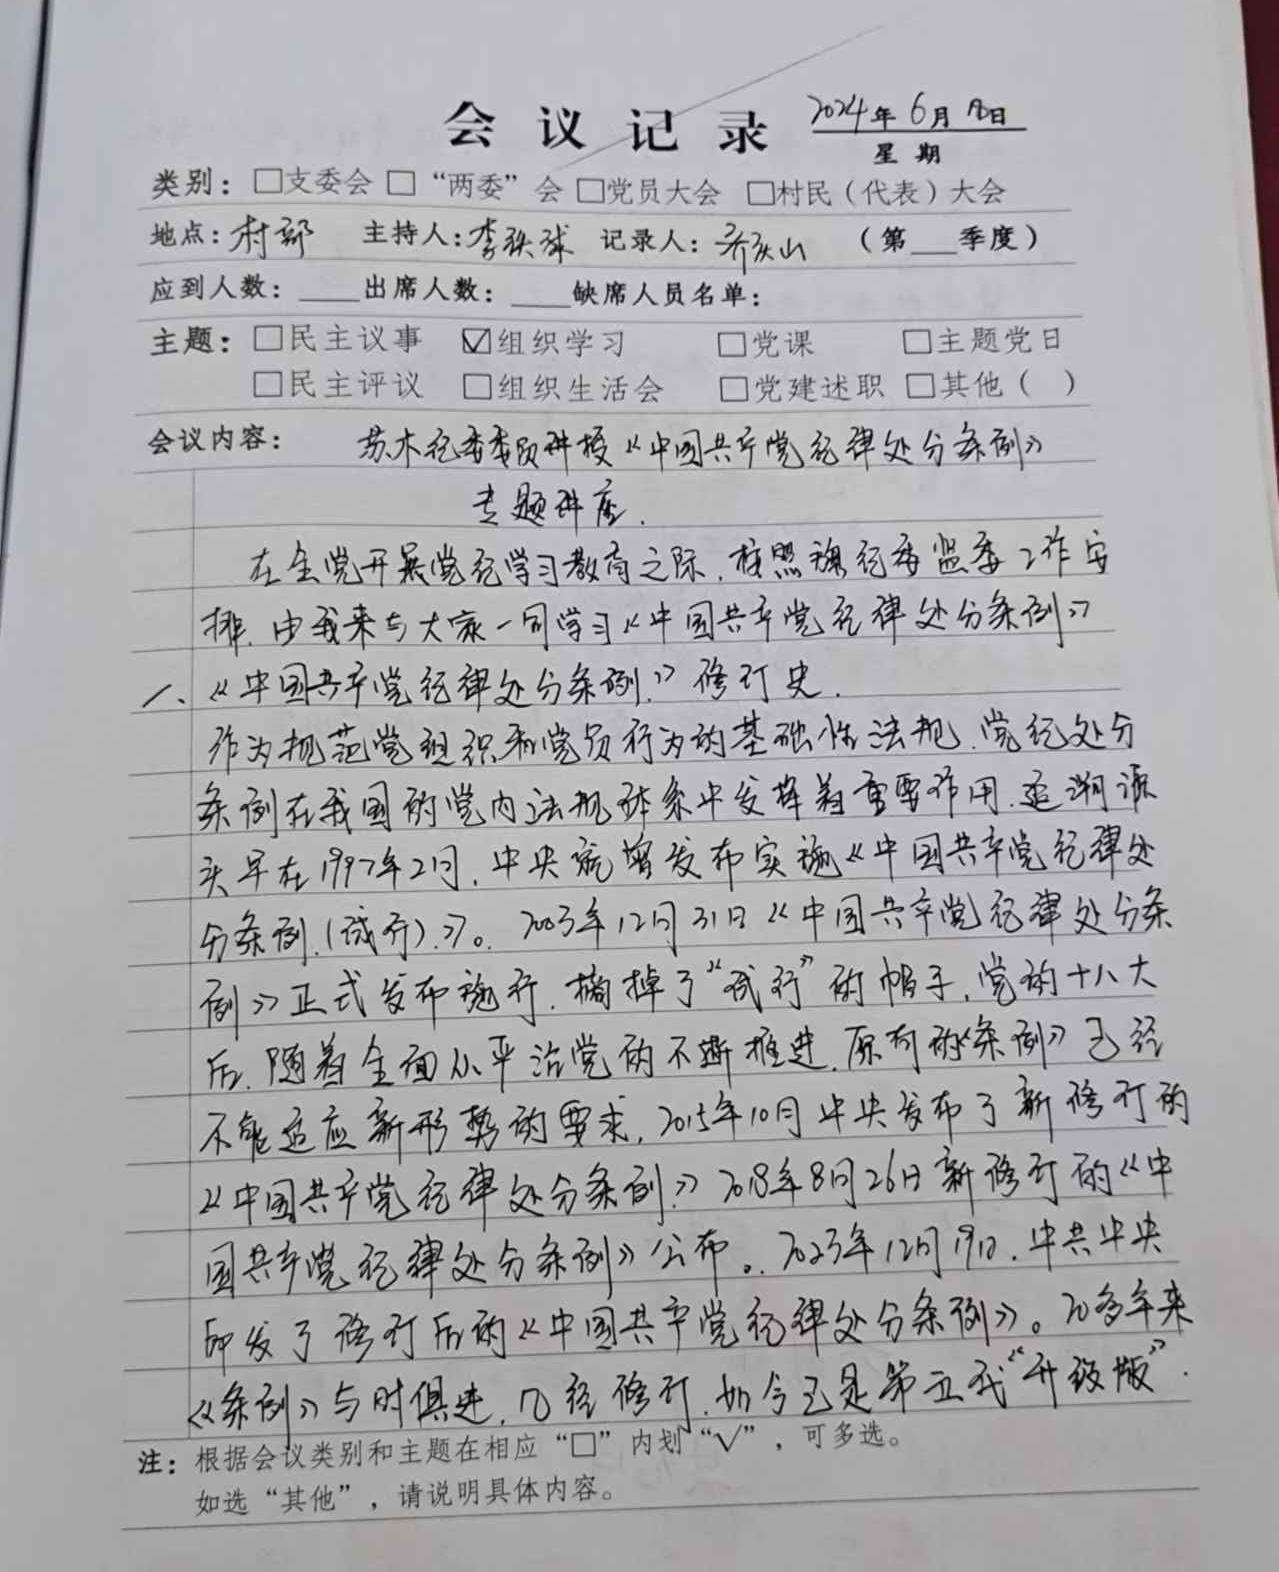 会议记录 2024年6月18日
星期
类别：□支委会 □“两委”会 □党员大会 □村民（代表）大会
地点：村部 主持人：李铁球 记录人：乔庆山 （第 季度）
应到人数： 出席人数： 缺席人员名单：
主题：□民主议事 ☑组织学习 □党课 □主题党日
□民主评议 □组织生活会 □党建述职 □其他（ ）
会议内容： 苏木纪委委员讲授《中国共产党纪律处分条例》
专题讲座.
在全党开展党纪学习教育之际，按照旗纪委监委工作安
排，由我来与大家一同学习《中国共产党纪律处分条例》
一、《中国共产党纪律处分条例》修订史.
作为规范党组织和党员行为的基础性法规，党纪处分
条例在我国的党内法规体系中发挥着重要作用，追溯源
头早在1997年2月，中央就曾发布实施《中国共产党纪律处
分条例(试行)》。2003年12月31日《中国共产党纪律处分条
例》正式发布施行，摘掉了“试行”的帽子，党的十八大
后，随着全面从严治党的不断推进，原有的《条例》已经
不能适应新形势的要求，2015年10月中央发布了新修订的
《中国共产党纪律处分条例》2018年8月26日新修订的《中
国共产党纪律处分条例》公布。2023年12月19日，中共中央
印发了修订后的《中国共产党纪律处分条例》。20多年来
《条例》与时俱进，几经修订，如今已是第五代“升级版”.
注：根据会议类别和主题在相应“□”内划“√”，可多选。
如选“其他”，请说明具体内容。